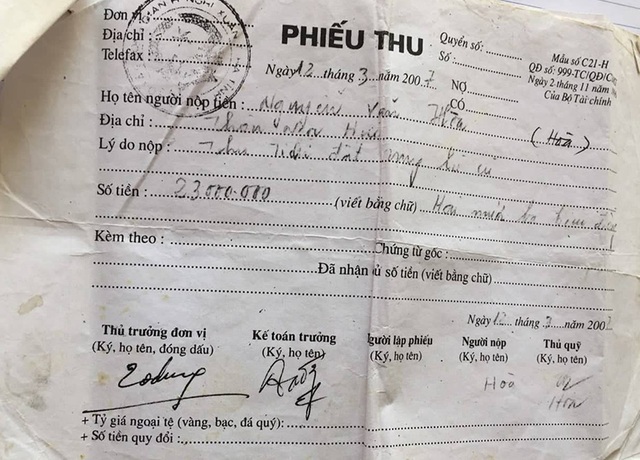 Đơn vị:
Địa chỉ:
Telefax
PHIẾU THU
Quyển số:
Số:
Mẫu số C21-H
QĐ số: 999-TC/QĐ/C
Ngày 2 tháng 11 năm
Của Bộ Tài chính
Ngày 12 tháng 3 năm 2007
NỢ
CÓ
Họ tên người nộp tiền: Nguyễn Văn Hòa (Hoà)
Địa chỉ: Thôn Hoa
Lý do nộp: Thu Tiền đất
Số tiền: 23.000.000 (viết bằng chữ) Hai mươi ba triệu đồng
Kèm theo: Chứng từ gốc:
Đã nhận đủ số tiền (viết bằng chữ)
Ngày 12 tháng 3 năm 200
Thủ trưởng đơn vị Kế toán trưởng Người lập phiếu Người nộp Thủ quỹ
(Ký, họ tên, đóng dấu) (Ký, họ tên) (Ký, họ tên) (Ký, họ tên) (Ký, họ tên)
Hòa
Hoa
+ Tỷ giá ngoại tệ (vàng, bạc, đá quý):
+ Số tiền quy đổi: